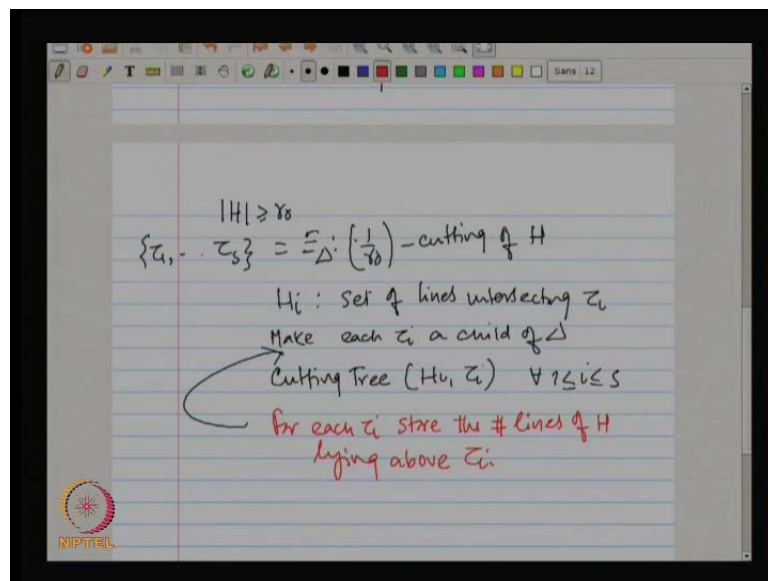 Sans 12
|H| ≥ r₀
{τ₁, - .. τₛ} = Ξ_Δ : (1/r₀) - cutting of H
Hi : set of lines intersecting τi
Make each τi a child of Δ
Cutting Tree (Hi, τi) ∀ 1≤i≤s
For each τi store the # lines of H
lying above τi.
NPTEL